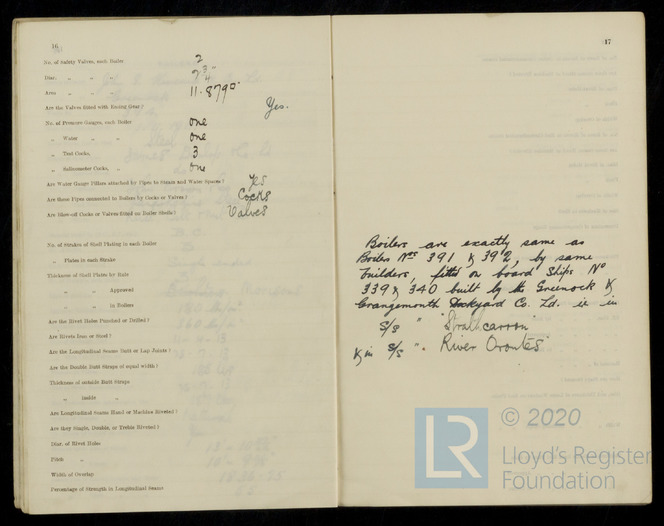 16
No. of Safety Valves, each Boiler 2
Diar. „ „ „
Area „ „ „ 11.879
Are the Valves fitted with Easing Gear? Yes.
No. of Pressure Gauges, each Boiler one
„ Water „ „ one
„ Test Cocks, „ 3
„ Salinometer Cocks, „ one
Are Water Gauge Pillars attached by Pipes to Steam and Water Spaces? Yes
Are these Pipes connected to Boilers by Cocks or Valves? Cocks
Are Blow-off Cocks or Valves fitted on Boiler Shells? Valves
No. of Strakes of Shell Plating in each Boiler
„ Plates in each Strake
Thickness of Shell Plates by Rule
„ „ Approved
„ „ in Boilers
Are the Rivet Holes Punched or Drilled?
Are Rivets Iron or Steel?
Are the Longitudinal Seams Butt or Lap Joints?
Are the Double Butt Straps of equal width?
Thickness of outside Butt Straps
„ inside „
Are Longitudinal Seams Hand or Machine Riveted?
Are they Single, Double, or Treble Riveted?
Diar. of Rivet Holes
Pitch „
Width of Overlap
Percentage of Strength in Longitudinal Seams
17
Boilers are exactly same as
Boilers Nos 391 & 392, by same
builders, fitted on board Ships No
339 & 340 built by the Greenock &
Grangemouth Dockyard Co. Ld. ie in
S/S "Strathcarron"
& in S/S "River Orontes"
© 2020
LR
Lloyd's Register
Foundation